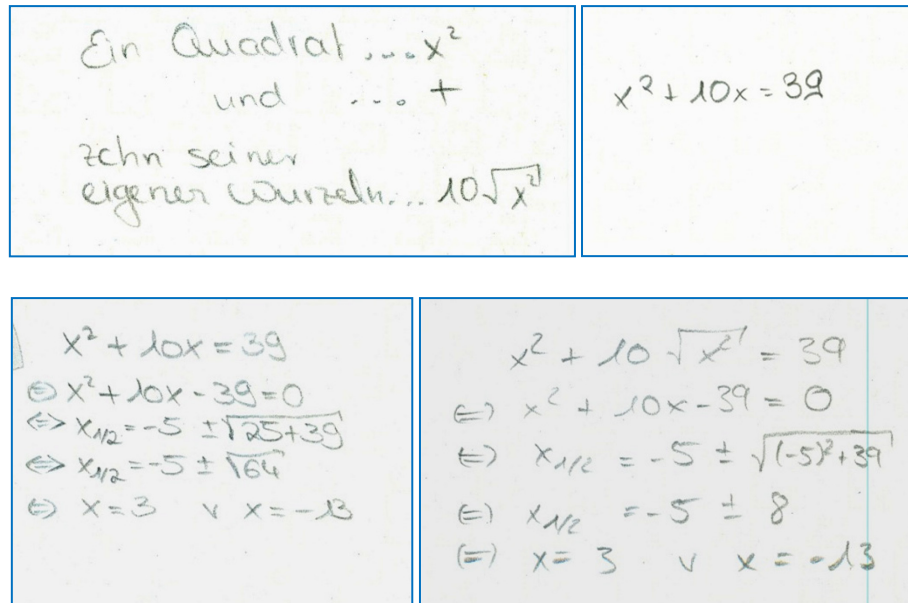 Ein Quadrat ... x²
und ... +
zehn seiner
eigener Wurzeln... 10√x²
x² + 10x = 39
x² + 10x = 39
⇔ x² + 10x - 39 = 0
⇔ x₁/₂ = -5 ± √25+39
⇔ x₁/₂ = -5 ± √64
⇔ x = 3 v x = -13
x² + 10 √x² = 39
⇔ x² + 10x - 39 = 0
⇔ x₁/₂ = -5 ± √(-5)²+39
⇔ x₁/₂ = -5 ± 8
⇔ x = 3 v x = -13